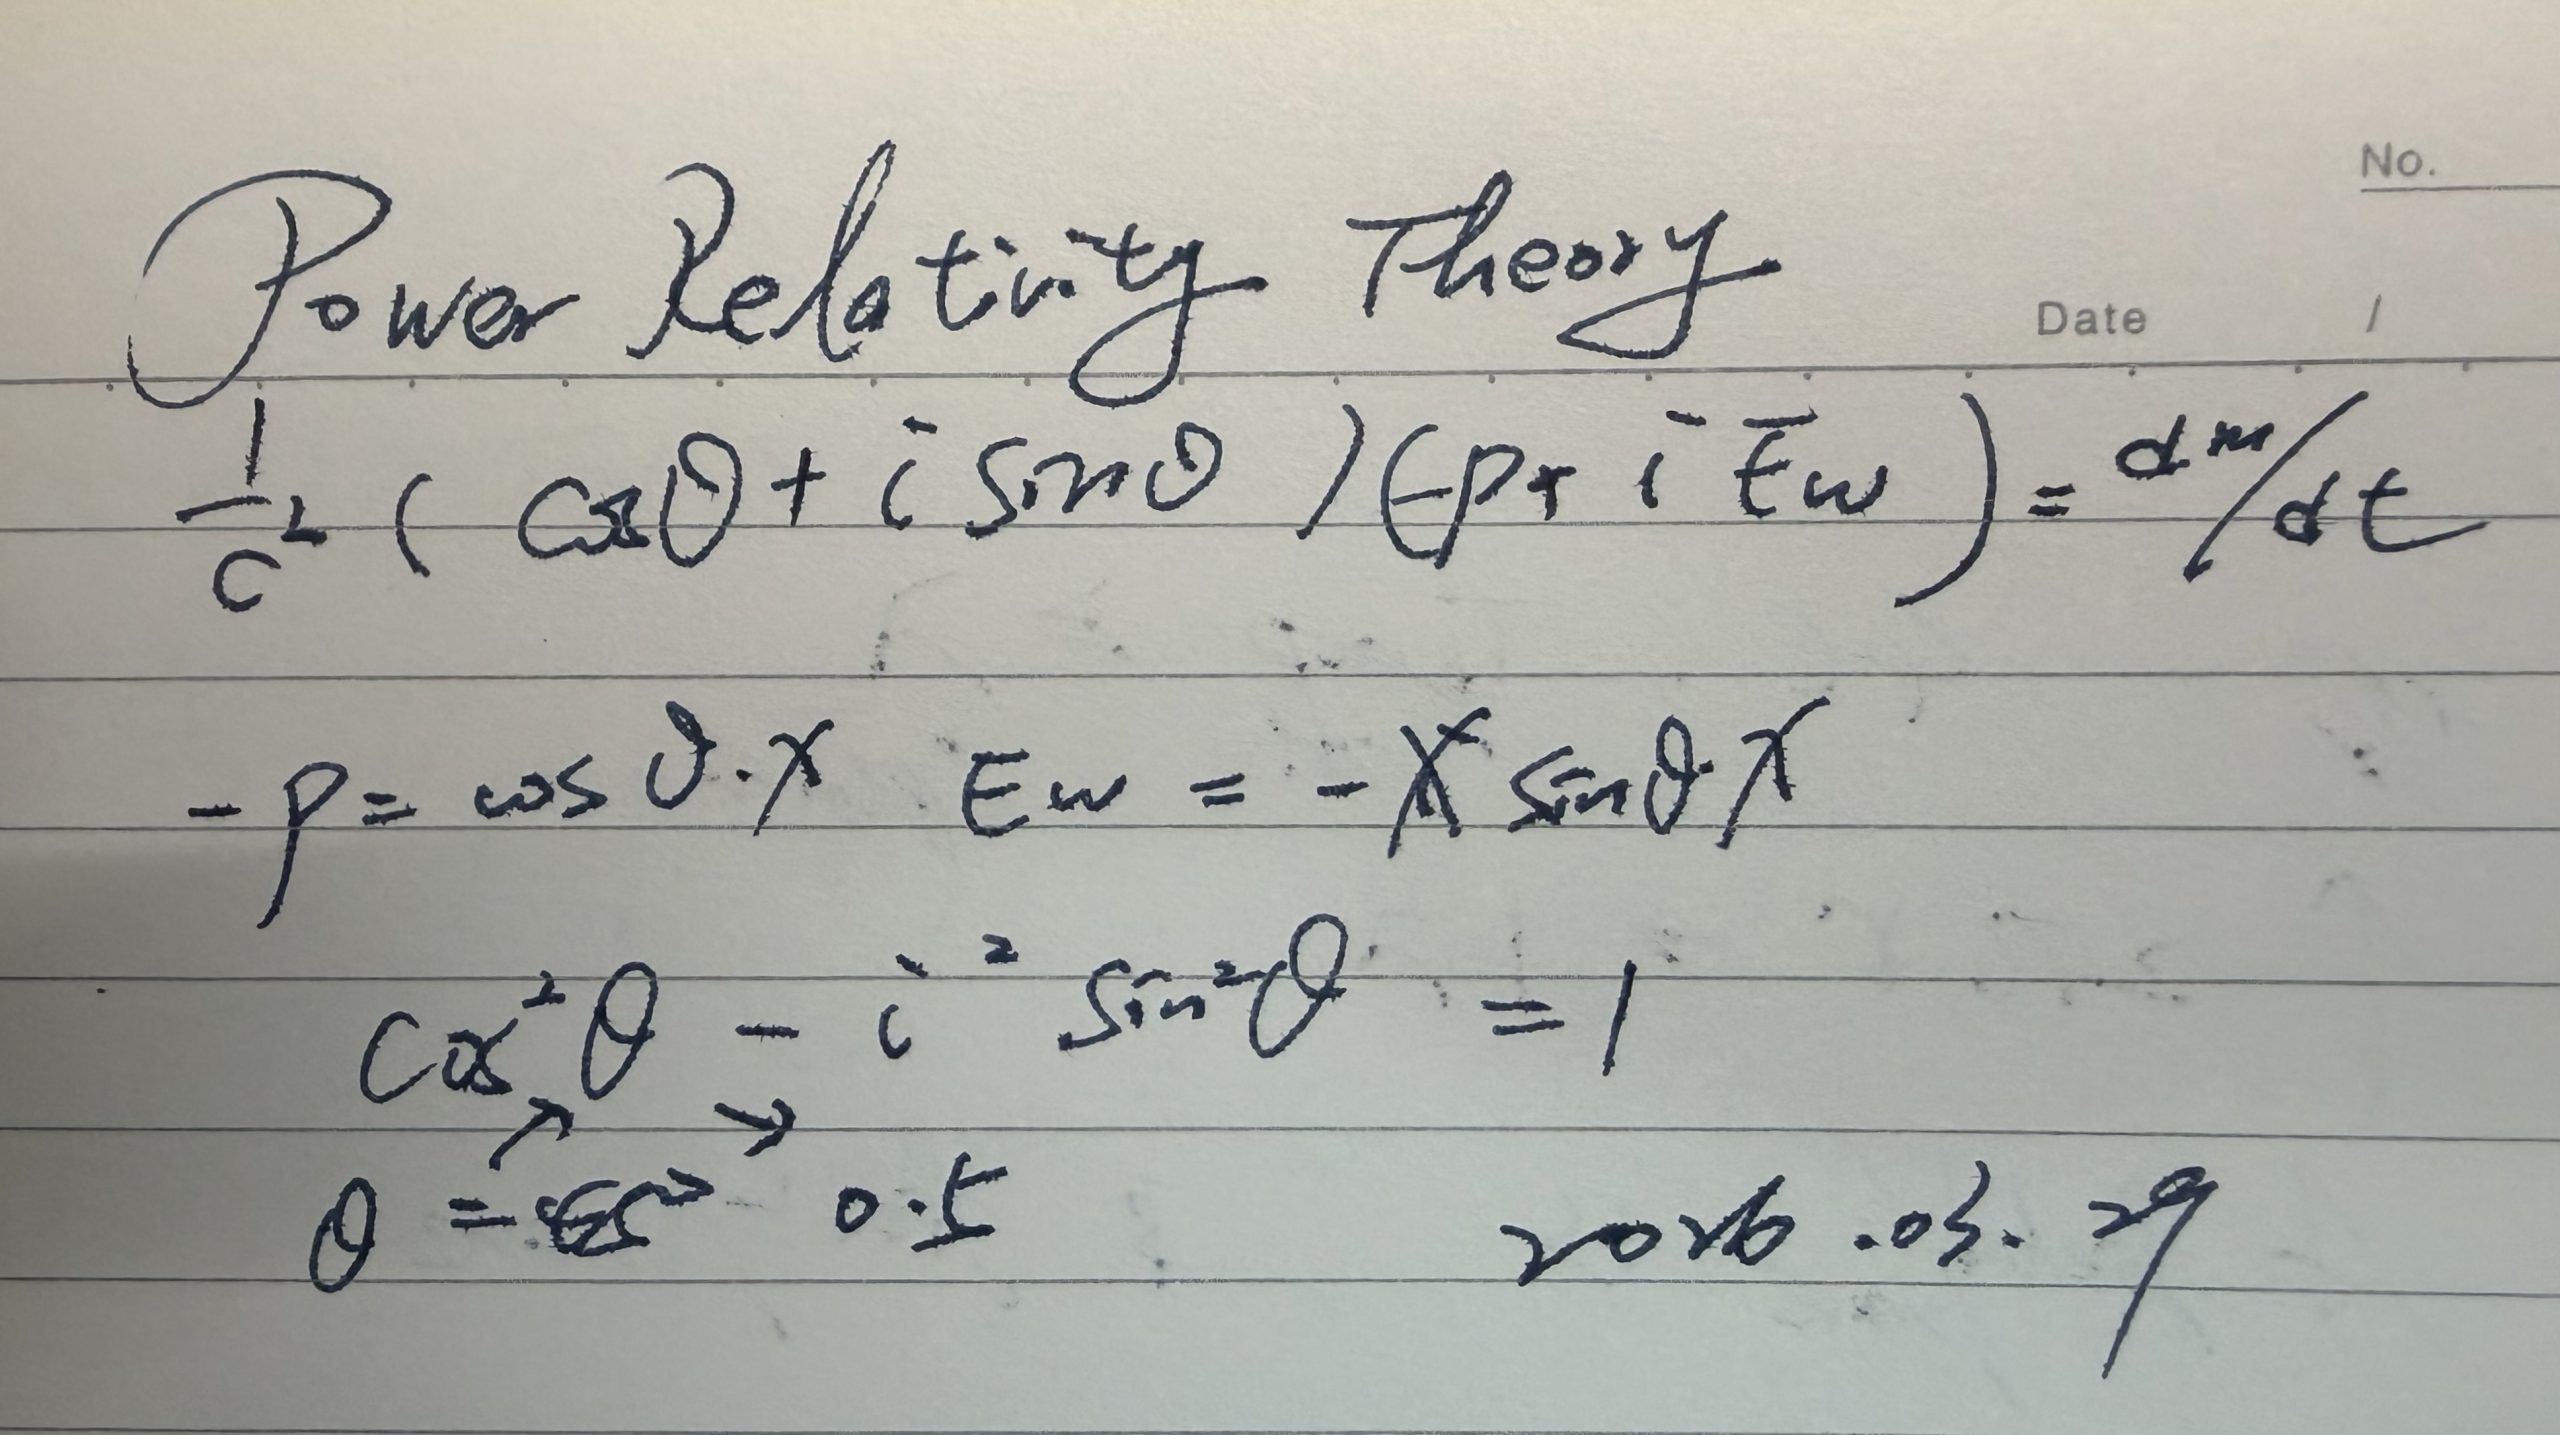 No.
Power Relativity Theory
Date /
1/c² ( cosθ + i sinθ )(-P + i Ew) = dm/dt
-P = cosθ·X Ew = - sinθ·X
cos²θ - i² sin²θ = 1
↗ →
θ = 0.5
2026.03.29